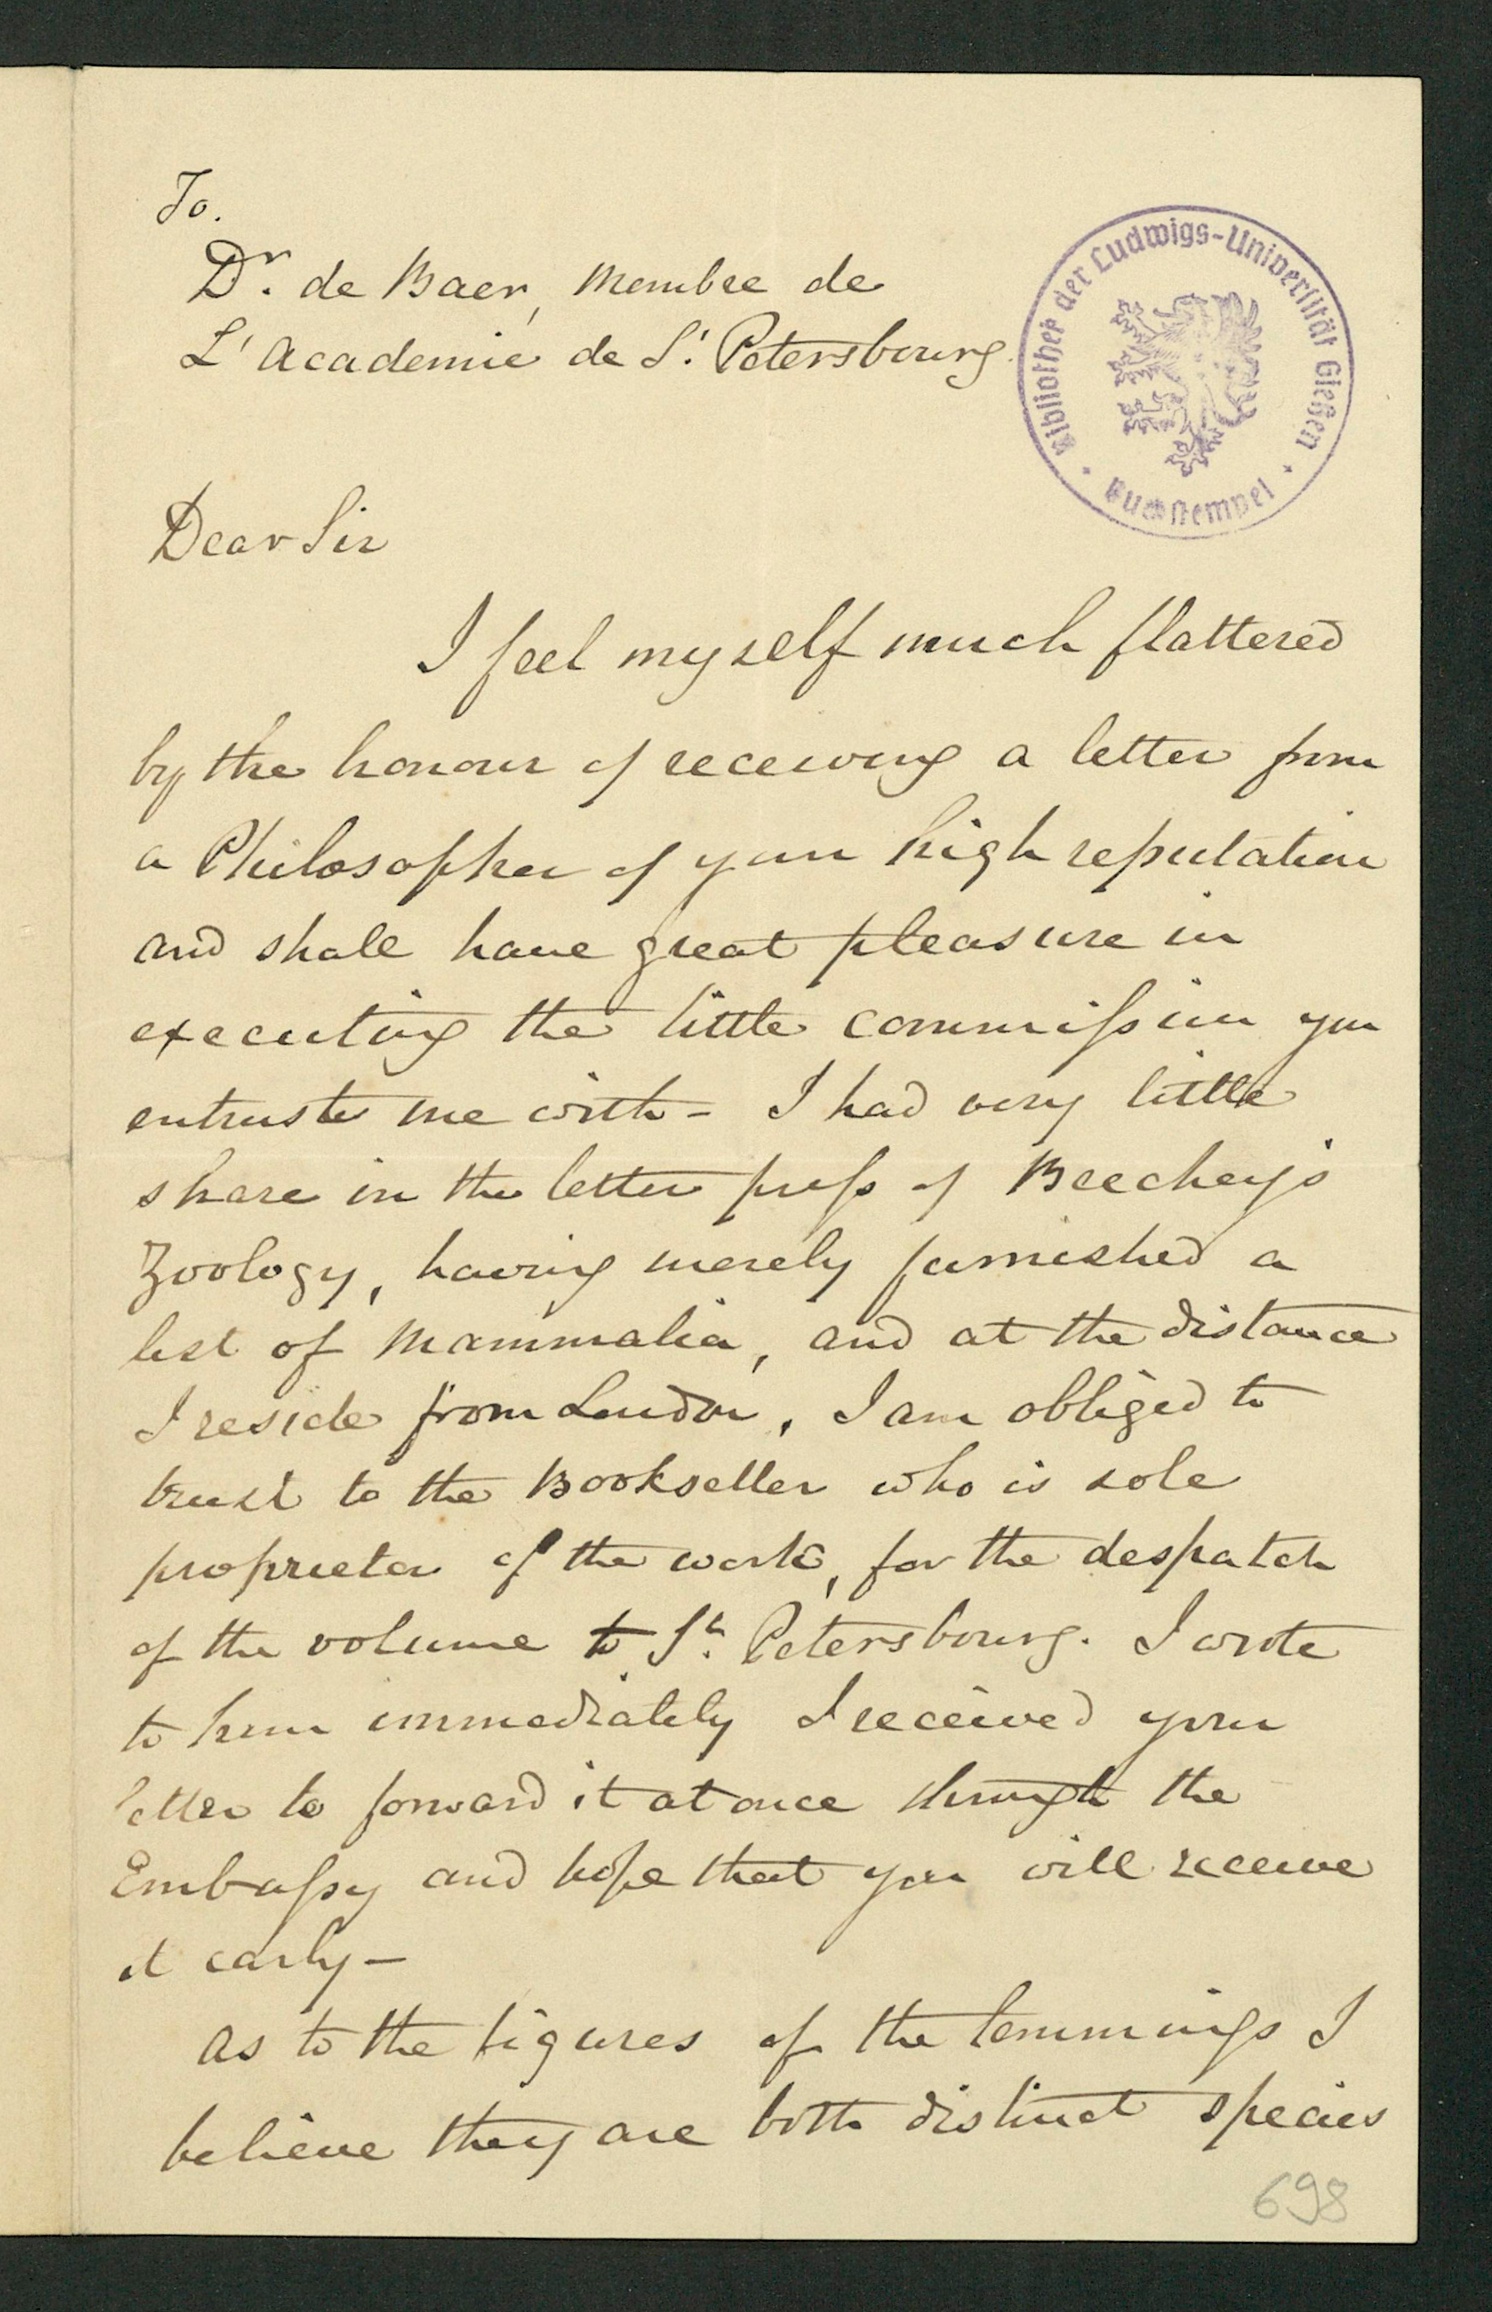 To.
Dr. de Baer, Membre de
L'Academie de St. Petersbourg.
Bibliothek der Ludwigs-Universität Gießen
Buchstempel
Dear Sir
I feel myself much flattered
by the honour of receiving a letter from
a Philosopher of your high reputation
and shall have great pleasure in
executing the little commission you
entruste me with - I had very little
share in the letter press of Beechey's
Zoology, having merely furnished a
list of Mammalia, and at the distance
I reside from London, I am obliged to
trust to the Bookseller who is sole
proprietor of the work, for the despatch
of the volume to St. Petersbourg. I wrote
to him immediately I received your
letter to forward it at once through the
Embassy and hope that you will receive
it early -
As to the figures of the lemmings I
believe they are both distinct species
698